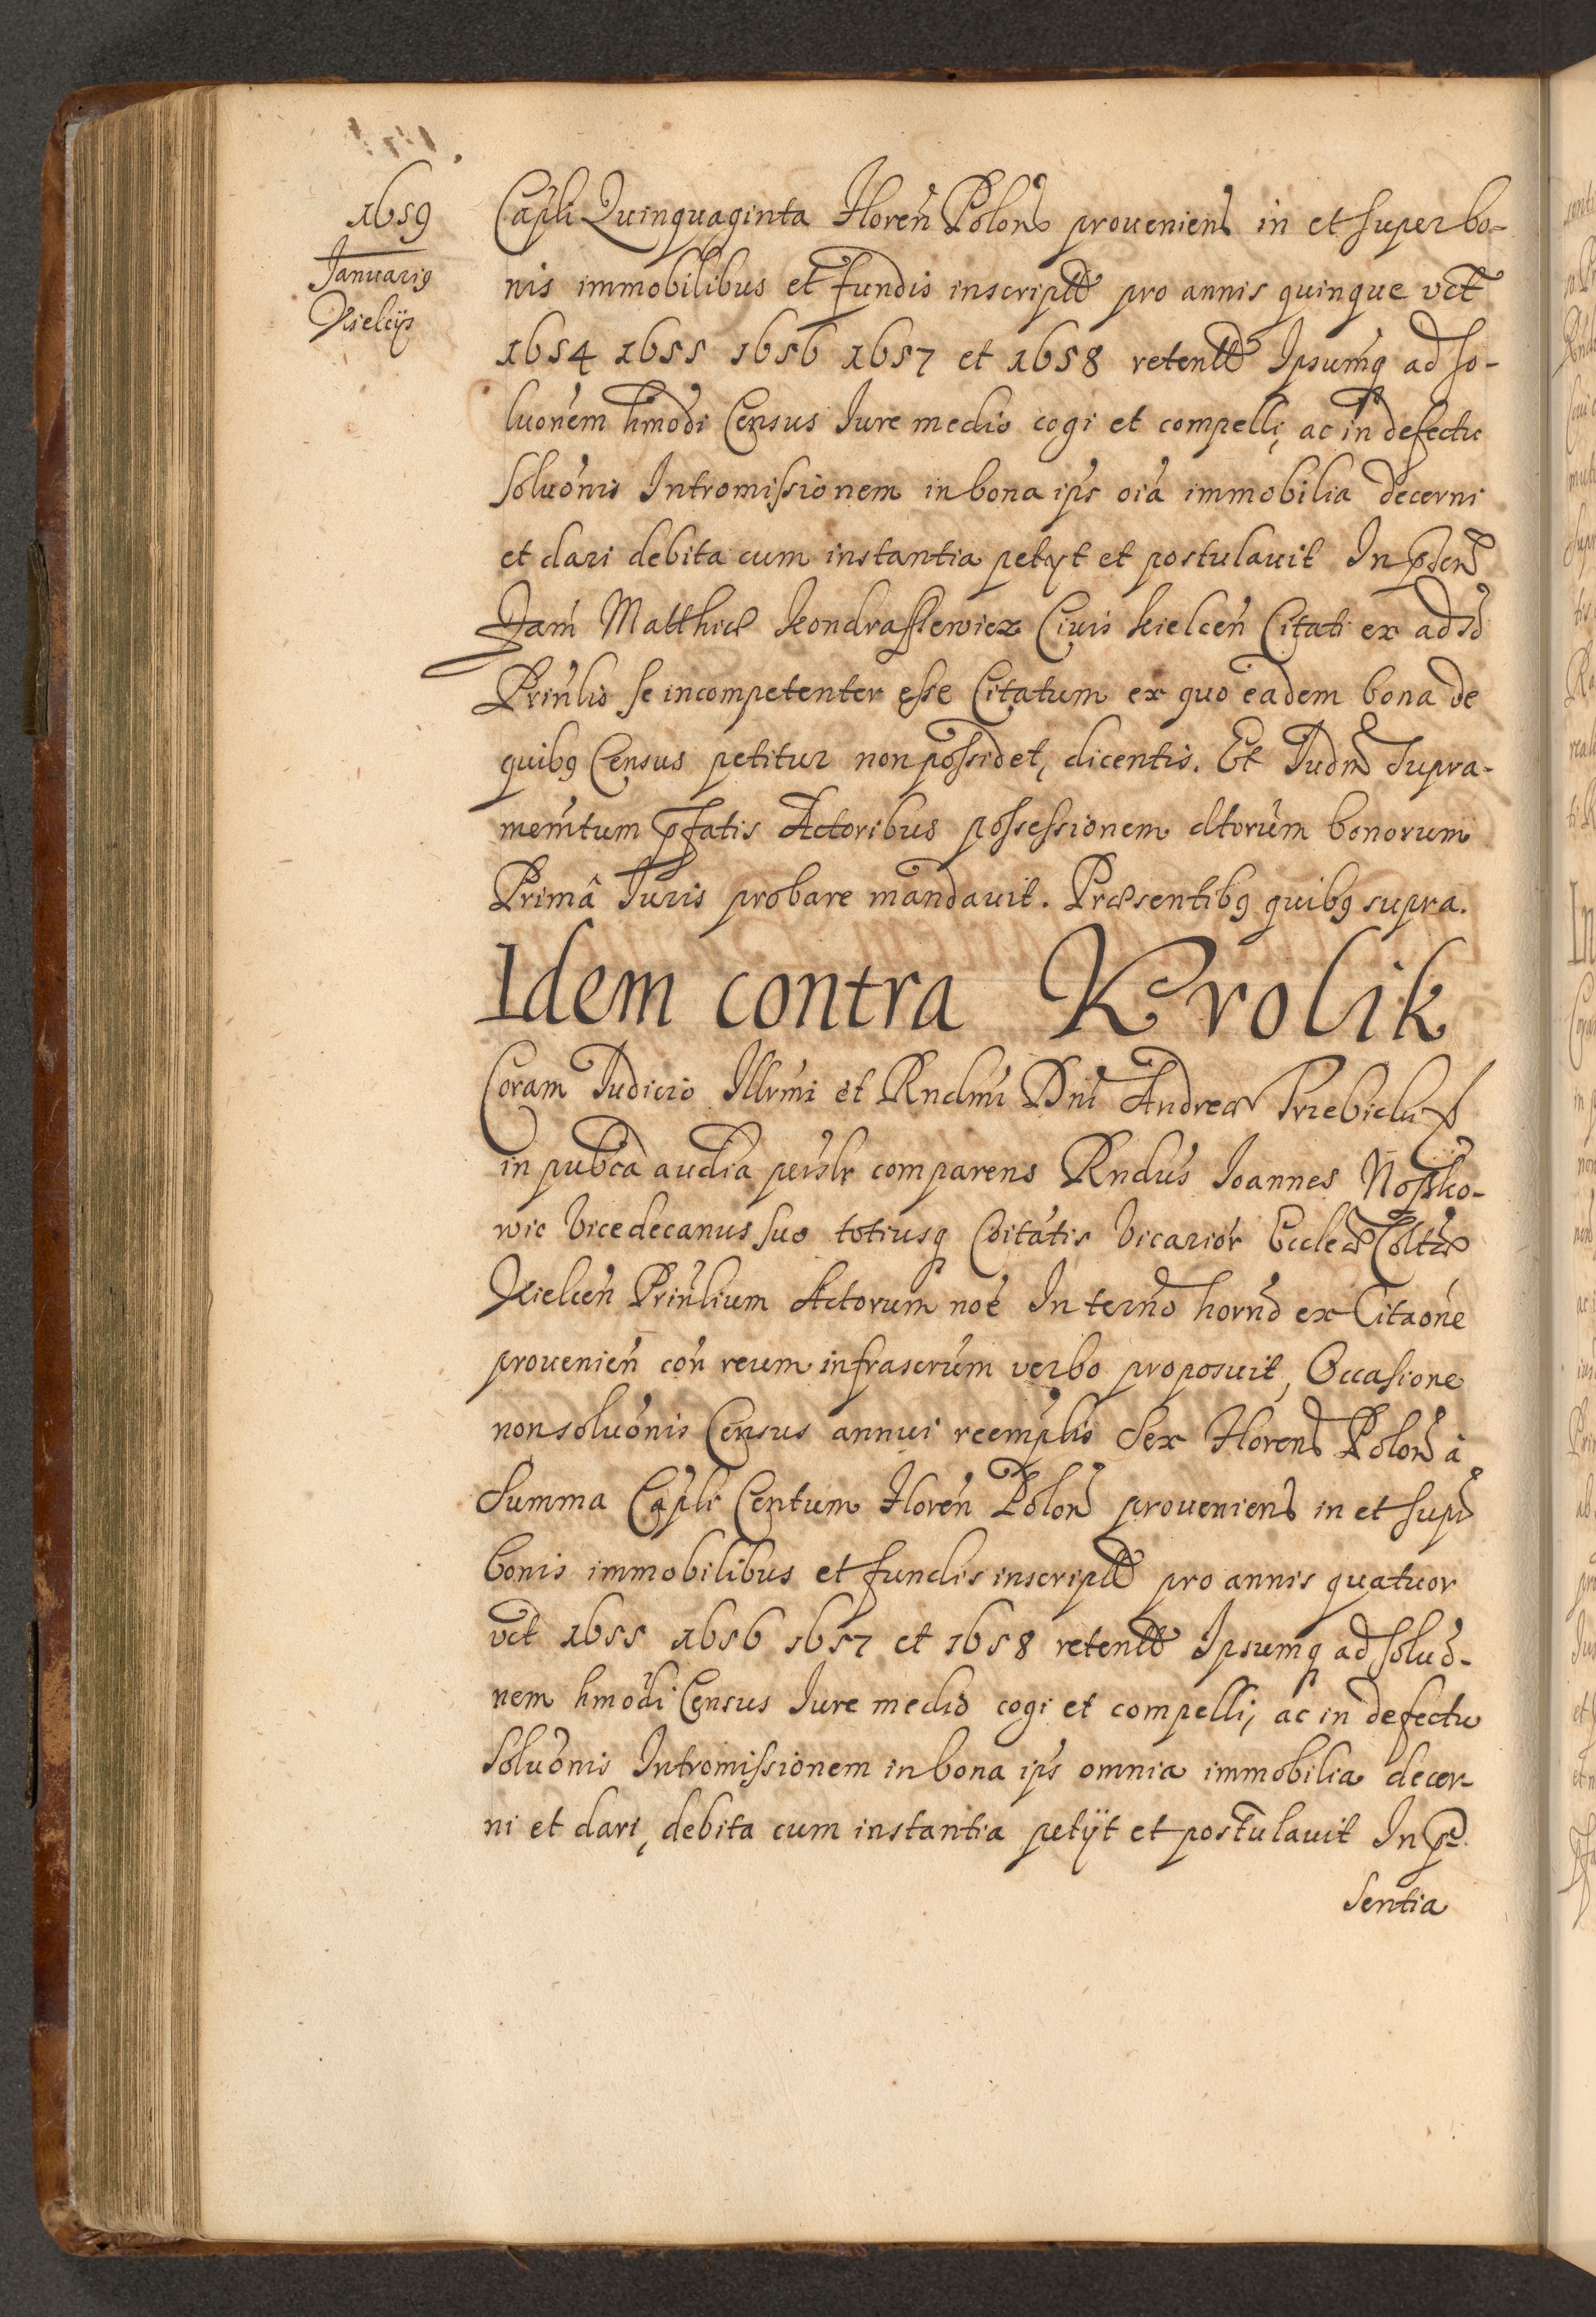 1659
Januarig
Kielcijs
Capli Quinquaginta Floren̄ Polon̄ prouenien̄ in et super bo-
nis immobilibus et fundis inscriptæ pro annis quinque vct
1654 1655 1656 1657 et 1658 retentæ Ipsumq ad so-
luōnem hmōdi Census Iure medio cogi et compelli, ac in defectu
soluōnis Intromissionem in bona ips̄ oīa immobilia decerni
et dari debita cum instantia petyt et postulauit In p̄sen̄
Fam̄ Matthiæ Kondrassewicz Ciuis Kielcen̄ Citati ex adso
Prin̄lis se incompetenter esse Citatum ex quo eadem bona de
quibg Census petitur non possidet, dicentis. Et Iudm̄ Supra-
mem̄tum p̄fatis Actoribus possessionem dtorūm bonorum
Primâ Iuris probare mandauit. Præsentibg quibg supra.
Idem contra Krolik
Coram Iudicio Illrmi et Rndmi Dni Andreæ Trzebicki
in pubca audīa perslr comparens Rndus Ioannes Nosko-
wic Vicedecanus suo totiusq Cōitātis Vicariōr Eccleæ Coltæ
Kielcen̄ Prin̄lium Actorum noē In term̄o horn̄o ex Citaōne
prouenien̄ con̄ reum infrascrūm verbo proposuit, Occasione
non soluōnis Census annui reemplis Sex Floren̄ Polon̄ à
Summa Capli Centum Floren̄ Polon̄ prouenien̄ in et sup̄
bonis immobilibus et fundis inscriptæ pro annis quatuor
vct 1655 1656 1657 et 1658 retentæ Ipsumq ad soluō-
nem hmōdi Census Iure medio cogi et compelli, ac in defectu
soluōnis Intromissionem in bona ips̄ omnia immobilia decer-
ni et dari, debita cum instantia petÿt et postulauit In p̄
sentia